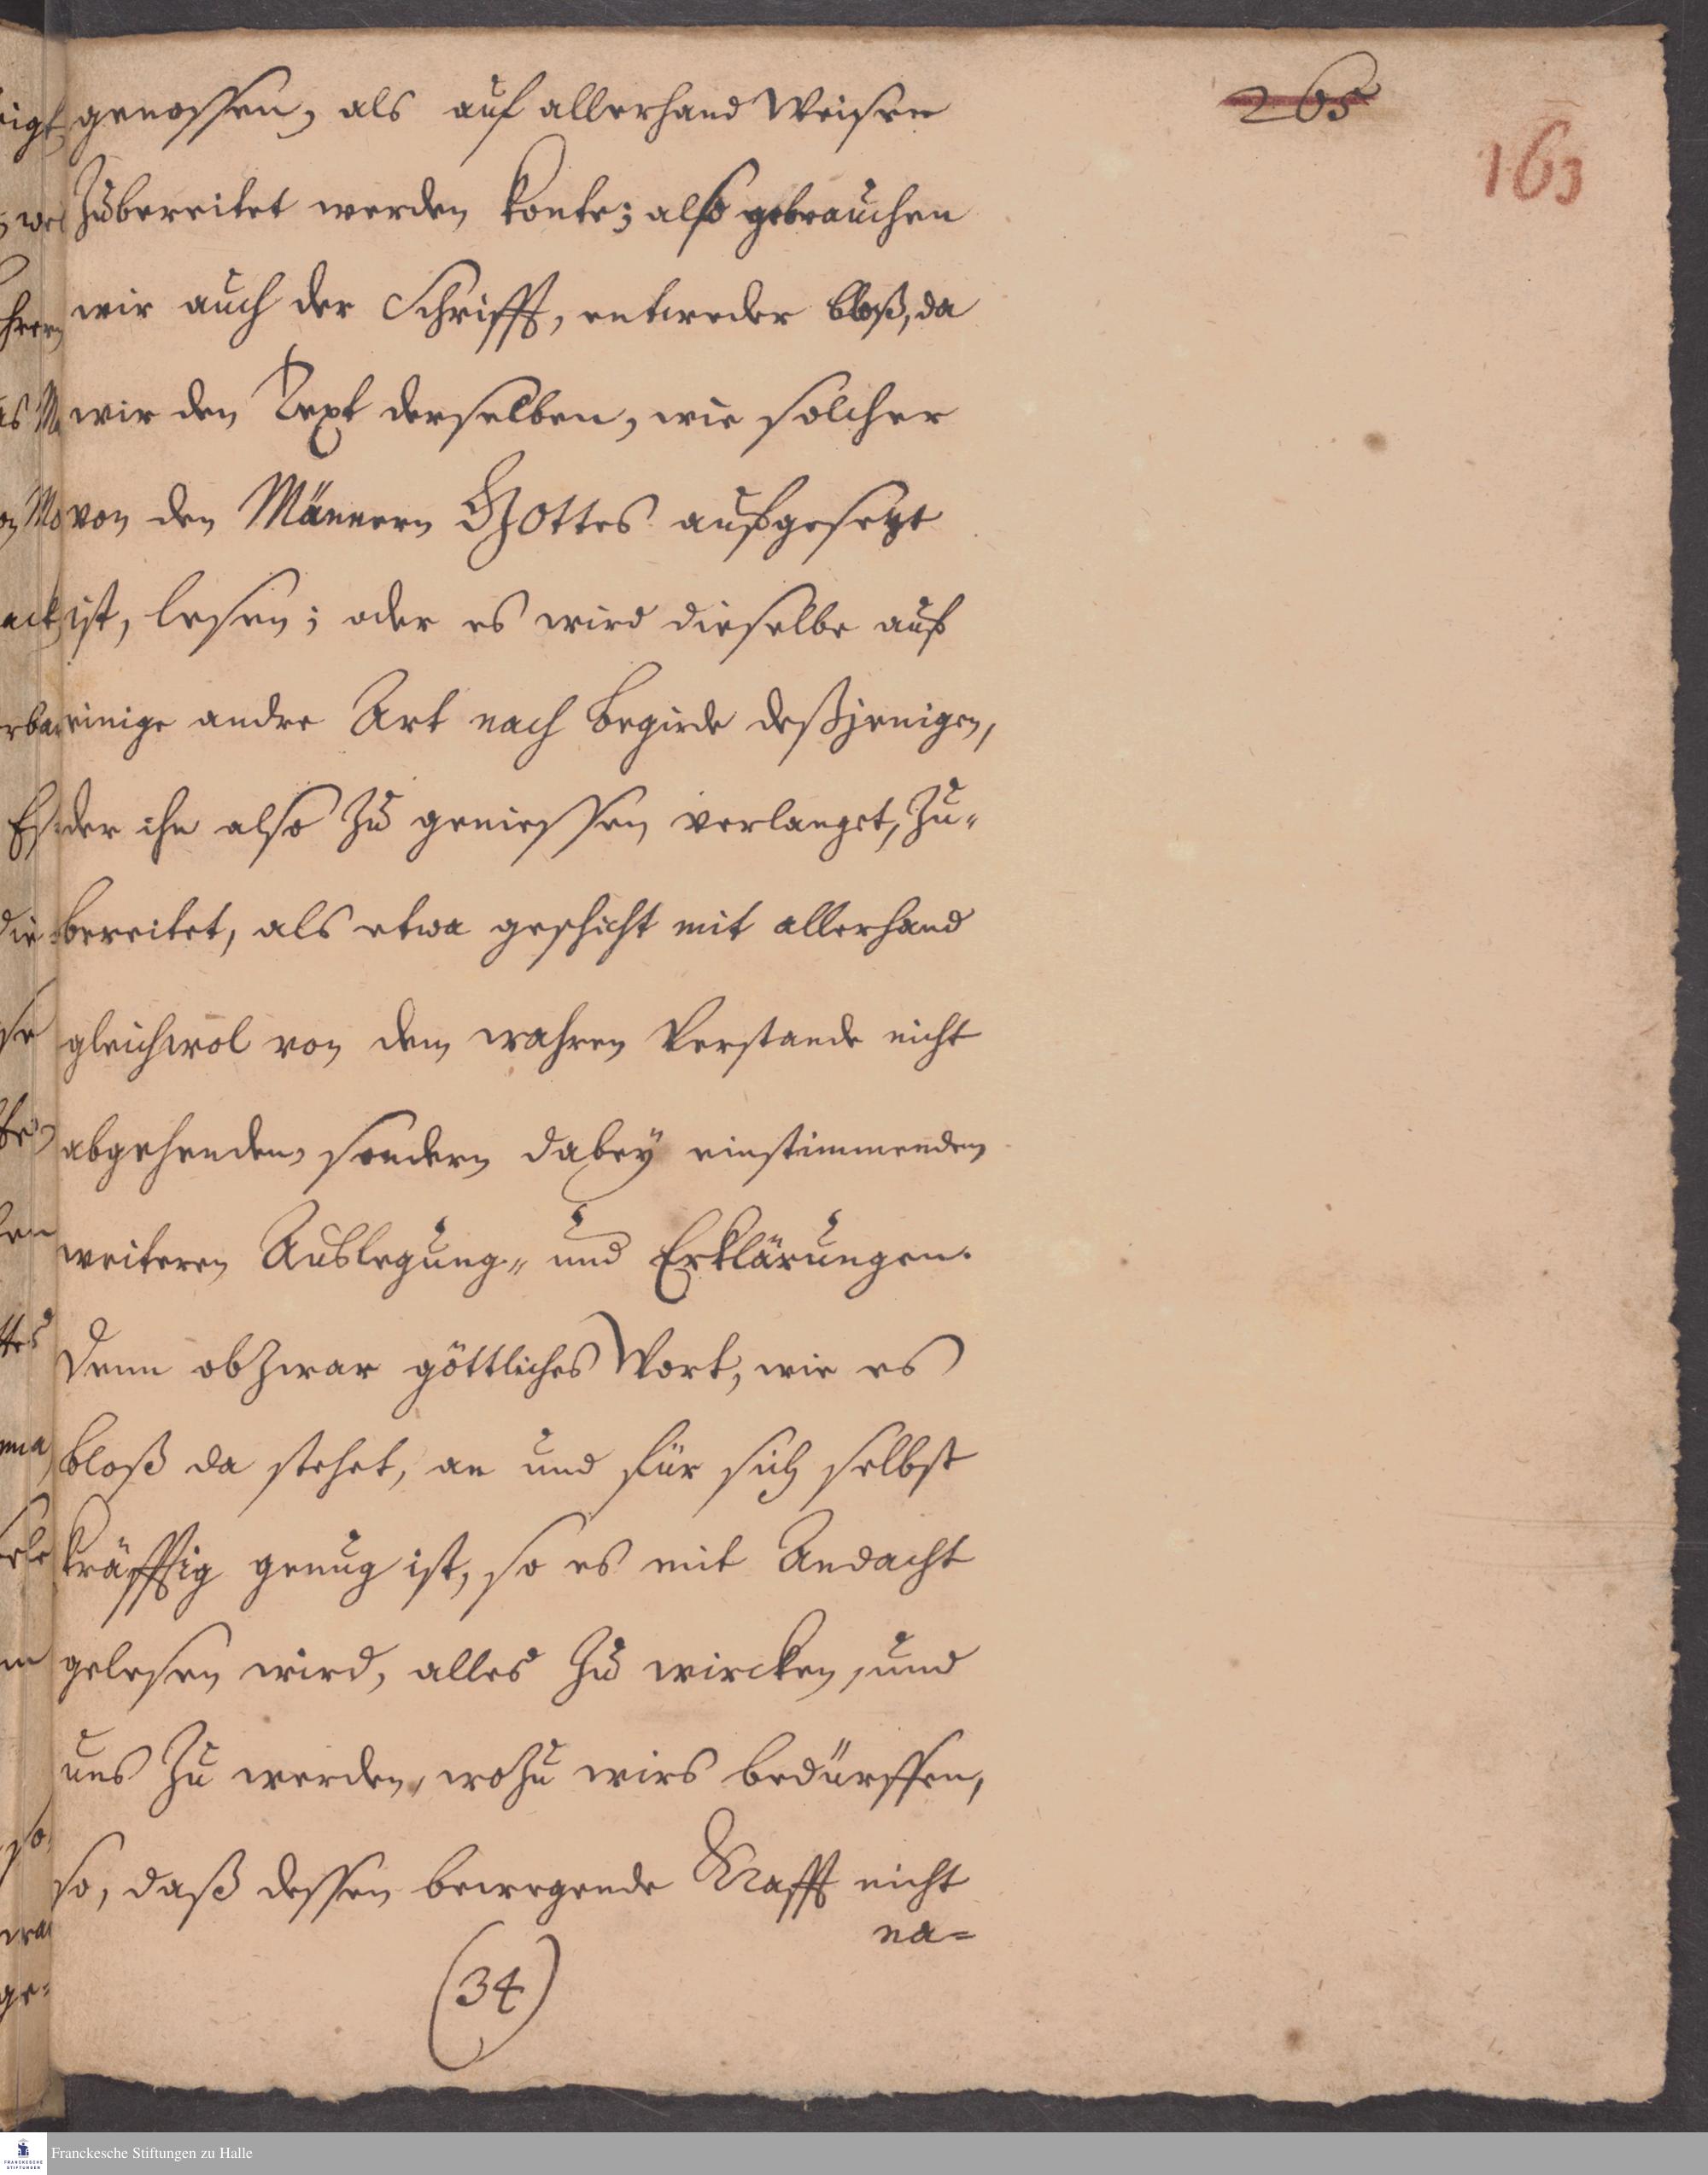 265
163
genossen, als auf allerhand Weisen
Zubereitet werden konte; also gebrauchen
wir auch der Schrifft, entweder bloß, da
wir den Text derselben, wie solcher
von den Männern Gottes aufgesetzt
ist, lesen; oder es wird dieselbe auf
einige andre Art nach Begirde deßjenigen,
der ihn also Zu geniessen verlanget, Zu-
bereitet, als etwa geschicht mit allerhand
gleichwol von dem wahren Verstande nicht
abgehenden, sondern dabeÿ einstimmenden
weiteren Auslegung- und Erklärungen.
Denn obzwar göttliches Wort, wie es
bloß da stehet, an und für sich selbst
kräfftig genug ist, so es mit Andacht
gelesen wird, alles Zu wircken, und
uns Zu werden, wozu wirs bedürffen,
so, daß dessen bewegende Krafft nicht
na=
(34)
Franckesche Stiftungen zu Halle